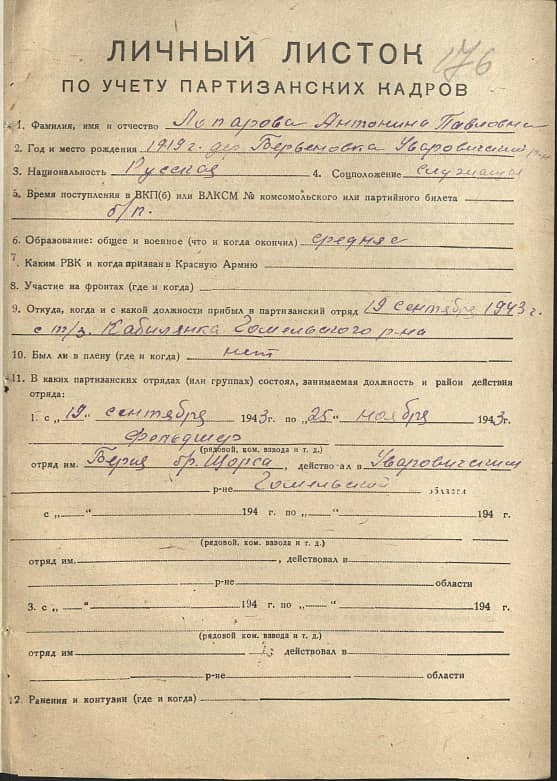 176
ЛИЧНЫЙ ЛИСТОК
ПО УЧЕТУ ПАРТИЗАНСКИХ КАДРОВ
1. Фамилия, имя и отчество Лопарова Антонина Павловна
2. Год и место рождения 1919 г. дер Бервеновка Уваровичский р-н
3. Национальность Русская 4. Соцположение служащая
5. Время поступления в ВКП(б) или ВЛКСМ № комсомольского или партийного билета
б/п.
6. Образование: общее и военное (что и когда окончил) среднее
7. Каким РВК и когда призван в Красную Армию
8. Участие на фронтах (где и когда)
9. Откуда, когда и с какой должности прибыл в партизанский отряд 19 сентября 1943 г.
с т/з. Кабилянка Гомельского р-на
10. Был ли в плену (где и когда) нет
11. В каких партизанских отрядах (или группах) состоял, занимаемая должность и район действия
отряда:
1. с „19“ сентября 1943 г. по „25“ ноября 1943 г.
Фельдшер
(рядовой, ком. взвода и т. д.)
отряд им. Берия бр. Щорса, действовал в Уваровичский
р-не Гомельской области
с „ “ 194 г. по „ “ 194 г.
(рядовой, ком. взвода и т. д.)
отряд им. , действовал в
р-не области
3. с „ “ 194 г. по „ “ 194 г.
(рядовой, ком. взвода и т. д.)
отряд им действовал в
р-не области
12. Ранения и контузии (где и когда)